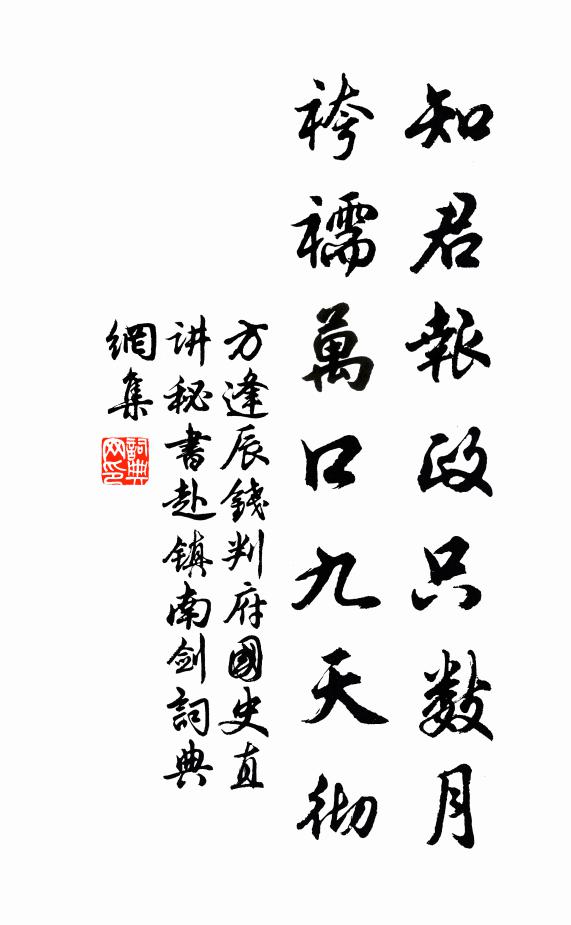 知君報政只数月
袴襦萬口九天彻
方逢辰錢判府國史直
讲秘書赴镇南剑詞典
網集
詞典网印